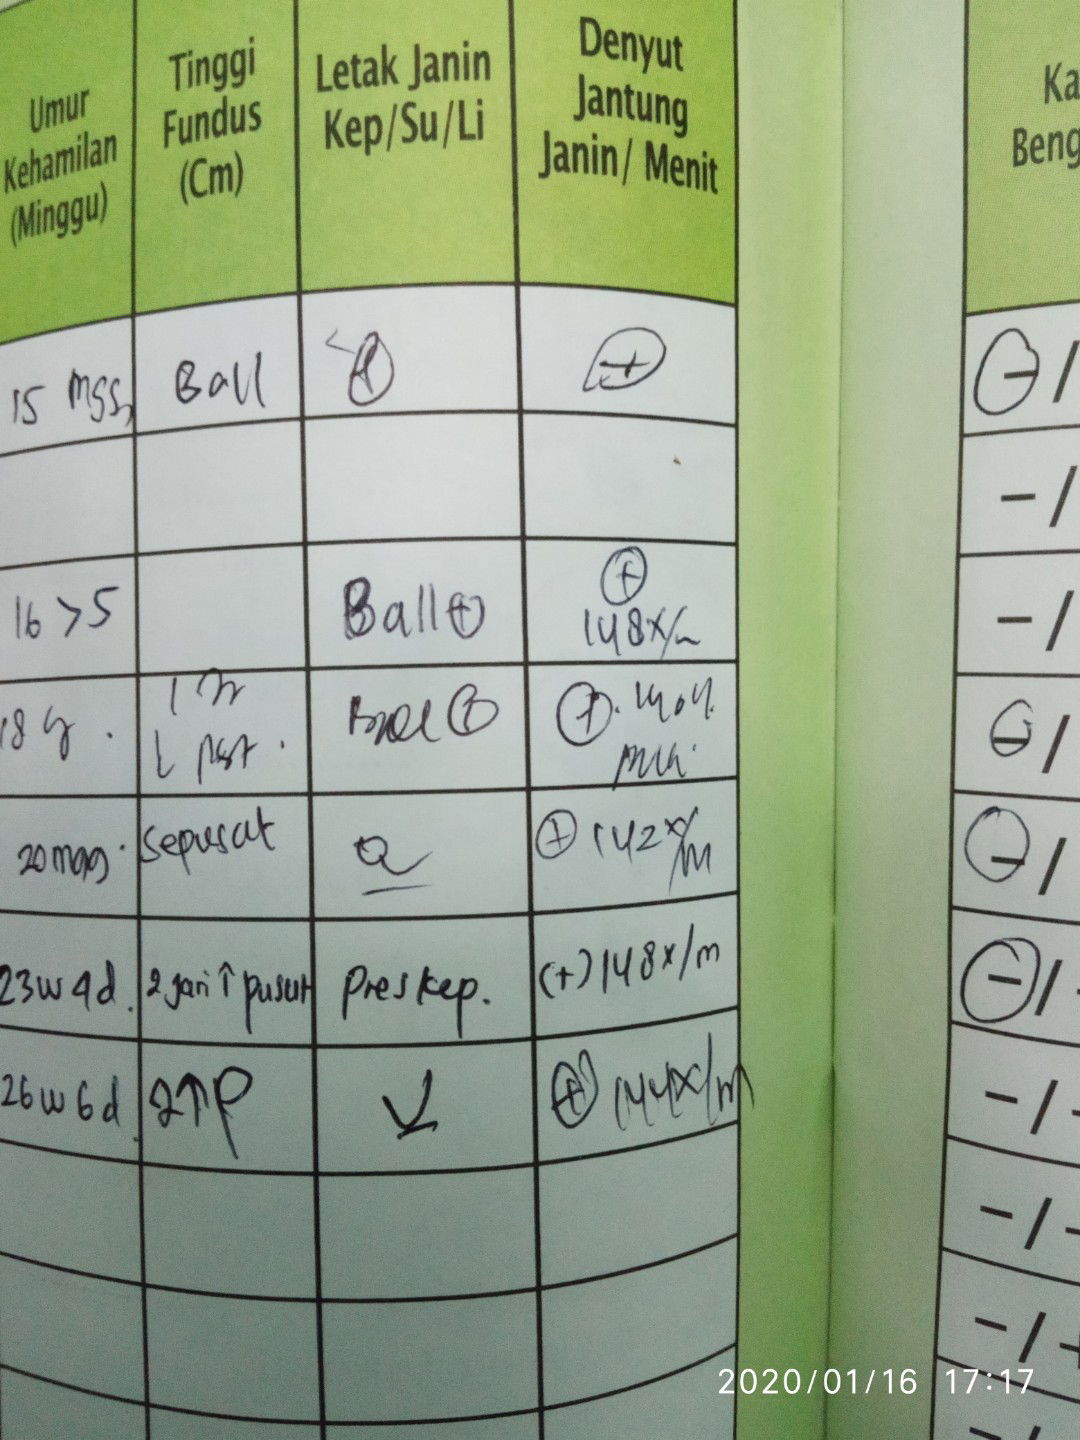 Umur
Kehamilan
(Minggu)
Tinggi
Fundus
(Cm)
Letak Janin
Kep/Su/Li
Denyut
Jantung
Janin/ Menit
Ka
Beng
15 mgg
Ball
(+)
(-)/
-/
16 > 5
Ball (+)
(+)
148x/m
-/
18
(+)
(-)/
20 mgg
sepusat
(+) 142x/m
(-)/
23w4d.
2 jari ↑ pusat
Preskep.
(+) 148x/m
(-)/-
26w6d
2↑P
(+) 144x/m
-/-
-/-
-/+
-/-
2020/01/16 17:17